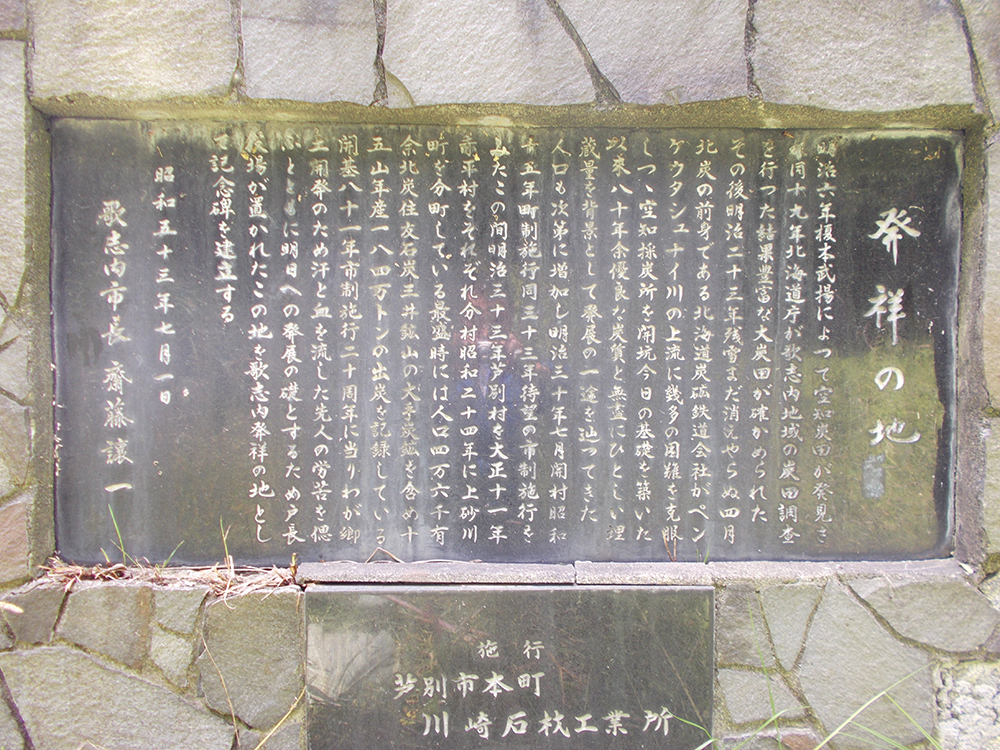 発祥の地
明治六年榎本武揚によって空知炭田が発見さ
同十九年北海道庁が歌志内地域の炭田調査
を行った結果豊富な大炭田が確かめられた
その後明治二十三年残雪まだ消えやらぬ四月
北炭の前身である北海道炭砿鉄道会社がペン
ケウタシュナイ川の上流に幾多の困難を克服
しつゝ空知採炭所を開坑今日の基礎を築いた
以来八十年余優良な炭質と無尽にひとしい埋
蔵量を背景として発展の一途を辿ってきた
人口も次第に増加し明治三十年七月開村昭和
十五年町制施行同三十三年待望の市制施行を
みたこの間明治三十三年芦別村を大正十一年
赤平村をそれぞれ分村昭和二十四年に上砂川
町を分町している最盛時には人口四万六千有
余北炭住友石炭三井鉱山の大手炭鉱を含め十
五山年産一八四万トンの出炭を記録している
開基八十一年市制施行二十周年に当りわが郷
土開発のため汗と血を流した先人の労苦を偲
ぶとともに明日への発展の礎とするため戸長
役場が置かれたこの地を歌志内発祥の地とし
て記念碑を建立する
昭和五十三年七月一日
歌志内市長 齋藤讓一
施行
芦別市本町
川崎石材工業所